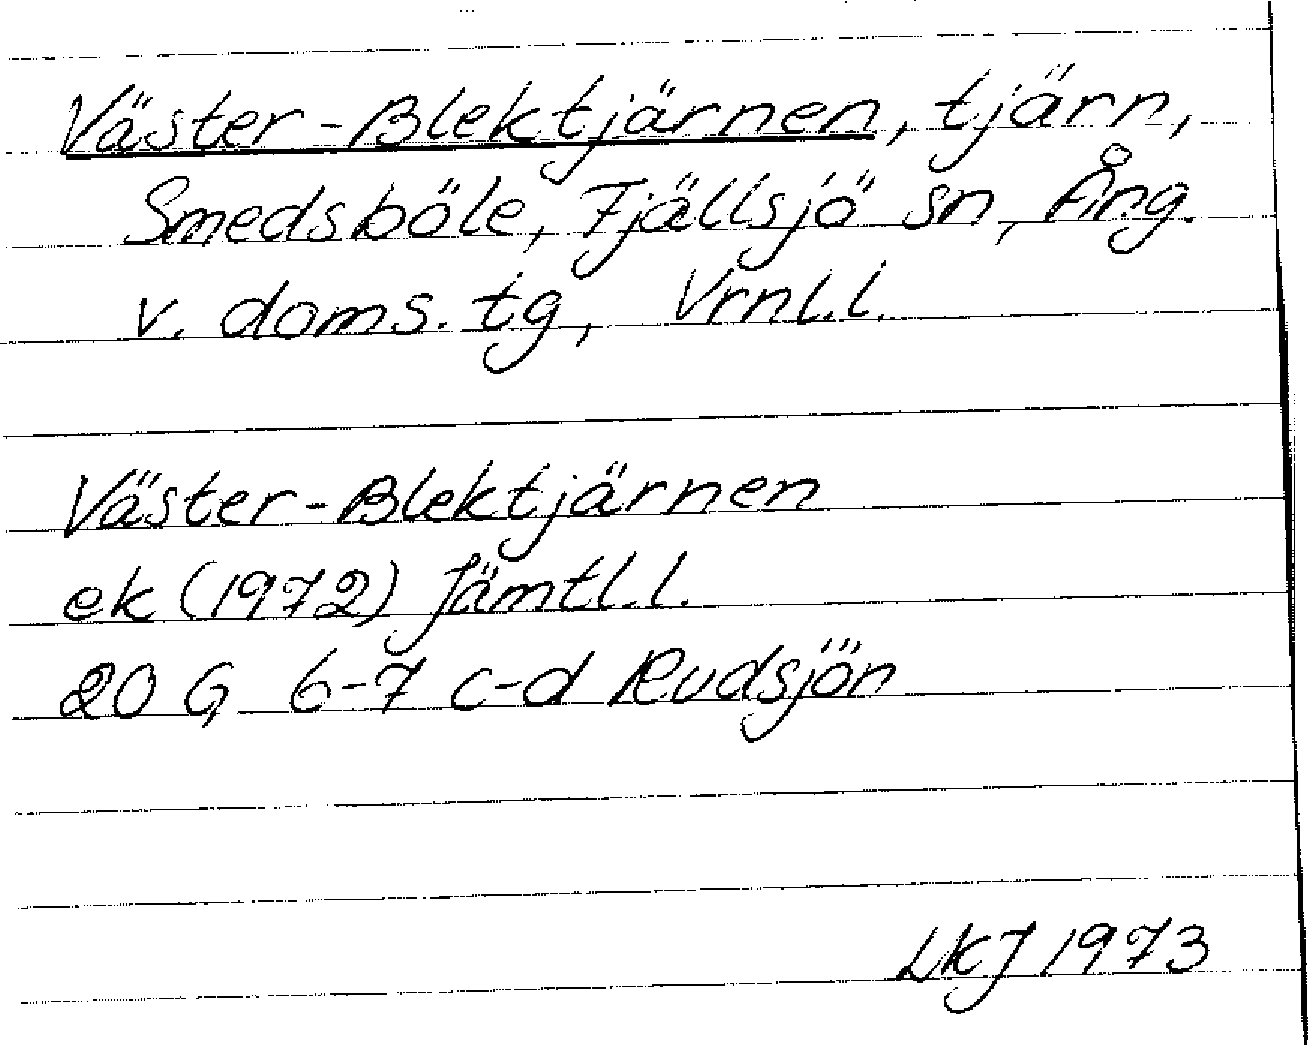 Väster-Blektjärnen, tjärn,
Smedsböle, Fjällsjö sn, Ång.
v. doms. tg, Vrnl.l.
Väster-Blektjärnen
ek (1972) Jämtl.l.
20 G 6-7 c-d Rudsjön
LKJ 1973